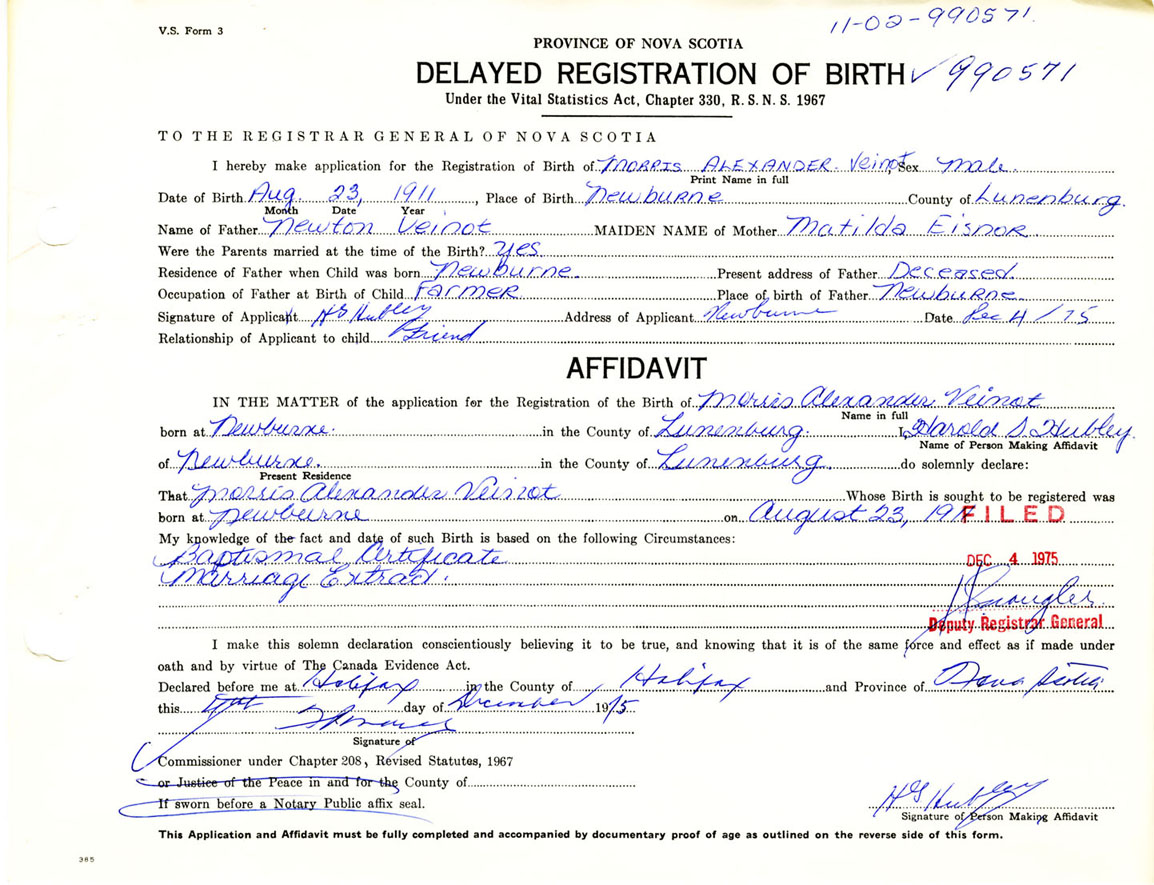 11-02-990571.
V.S. Form 3
PROVINCE OF NOVA SCOTIA
DELAYED REGISTRATION OF BIRTH ✓ 990571
Under the Vital Statistics Act, Chapter 330, R.S.N.S. 1967
TO THE REGISTRAR GENERAL OF NOVA SCOTIA
I hereby make application for the Registration of Birth of MORRIS ALEXANDER Veinot, Sex male.
Print Name in full
Date of Birth Aug. 23, 1911, Place of Birth Newburne County of Lunenburg.
Month Date Year
Name of Father Newton Veinot MAIDEN NAME of Mother Matilda Eisnor
Were the Parents married at the time of the Birth? yes
Residence of Father when Child was born Newburne. Present address of Father Deceased
Occupation of Father at Birth of Child Farmer Place of birth of Father Newburne
Signature of Applicant HS Hubley Address of Applicant Newburne Date Dec 4/75
Relationship of Applicant to child Friend
AFFIDAVIT
IN THE MATTER of the application for the Registration of the Birth of Morris Alexander Veinot
Name in full
born at Newburne. in the County of Lunenburg. I, Harold S. Hubley.
Name of Person Making Affidavit
of Newburne. in the County of Lunenburg do solemnly declare:
Present Residence
That Morris Alexander Veinot Whose Birth is sought to be registered was
born at Newburne on August 23, 1911
FILED
My knowledge of the fact and date of such Birth is based on the following Circumstances:
Baptismal Certificate
DEC 4 1975
Marriage Extract.
Deputy Registrar General
I make this solemn declaration conscientiously believing it to be true, and knowing that it is of the same force and effect as if made under
oath and by virtue of The Canada Evidence Act.
Declared before me at Halifax in the County of Halifax and Province of Nova Scotia
this day of December 1975
Signature of
Commissioner under Chapter 208, Revised Statutes, 1967
or Justice of the Peace in and for the County of
If sworn before a Notary Public affix seal.
HS Hubley
Signature of Person Making Affidavit
This Application and Affidavit must be fully completed and accompanied by documentary proof of age as outlined on the reverse side of this form.
385